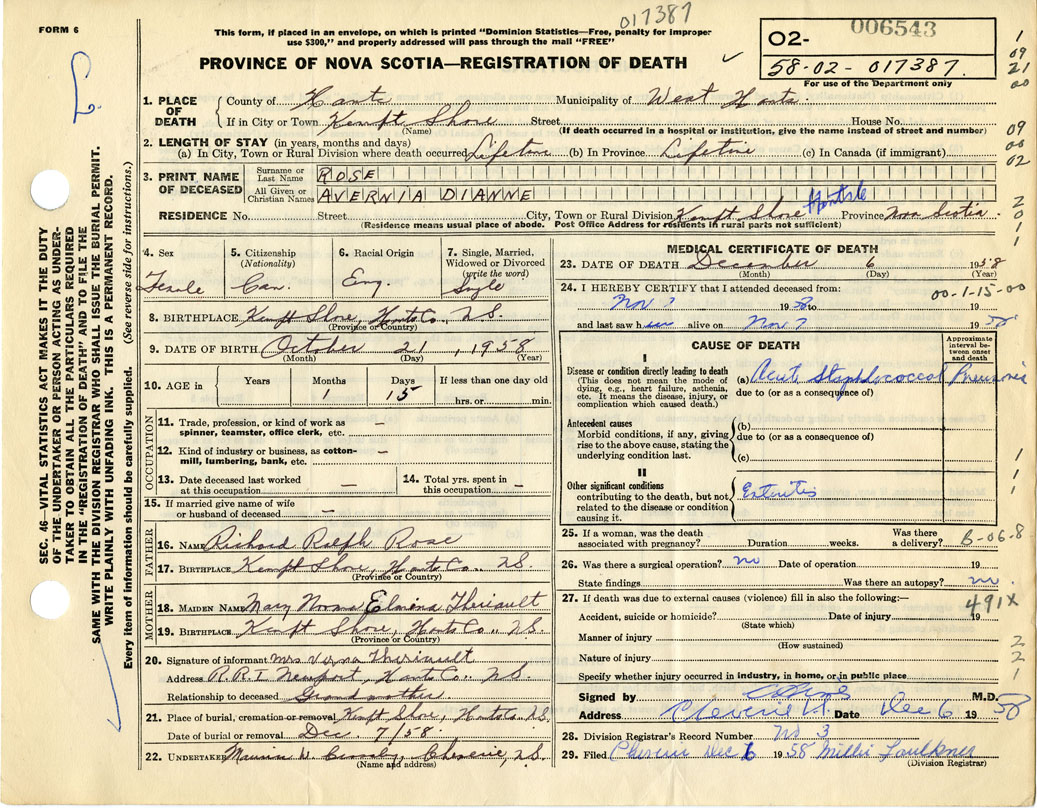 017387
FORM 6
This form, if placed in an envelope, on which is printed "Dominion Statistics—Free, penalty for improper
use $300," and properly addressed will pass through the mail "FREE"
O2- 006543
58-02-017387.
For use of the Department only
PROVINCE OF NOVA SCOTIA—REGISTRATION OF DEATH
1
09
21
00
09
00
02
2
0
1
1
SEC. 46—VITAL STATISTICS ACT MAKES IT THE DUTY
OF THE UNDERTAKER OR PERSON ACTING AS UNDER-
TAKER TO OBTAIN ALL THE PARTICULARS REQUIRED
IN THE "REGISTRATION OF DEATH" AND TO FILE THE
SAME WITH THE DIVISION REGISTRAR WHO SHALL ISSUE THE BURIAL PERMIT.
WRITE PLAINLY WITH UNFADING INK. THIS IS A PERMANENT RECORD.
Every item of information should be carefully supplied. (See reverse side for instructions.)
1. PLACE OF DEATH
County of Hants Municipality of West Hants.
If in City or Town Kempt Shore Street House No.
(Name) (If death occurred in a hospital or institution, give the name instead of street and number)
2. LENGTH OF STAY (in years, months and days)
(a) In City, Town or Rural Division where death occurred Lifetime (b) In Province Lifetime (c) In Canada (if immigrant)
3. PRINT NAME OF DECEASED
Surname or Last Name ROSE
All Given or Christian Names AVERNIA DIANNE
RESIDENCE No. Street City, Town or Rural Division Kempt Shore Province Nova Scotia
(Residence means usual place of abode. Post Office Address for residents in rural parts not sufficient)
4. Sex
Female
5. Citizenship
(Nationality)
Can.
6. Racial Origin
Eng.
7. Single, Married,
Widowed or Divorced
(write the word)
Single
8. BIRTHPLACE Kempt Shore, Hants Co., N.S.
(Province or Country)
9. DATE OF BIRTH October 21, 1958
(Month) (Day) (Year)
10. AGE in
Years Months Days If less than one day old
1 15 hrs. or min.
OCCUPATION
11. Trade, profession, or kind of work as
spinner, teamster, office clerk, etc. —
12. Kind of industry or business, as cotton-
mill, lumbering, bank, etc. —
13. Date deceased last worked
at this occupation —
14. Total yrs. spent in
this occupation —
15. If married give name of wife
or husband of deceased —
FATHER
16. NAME Richard Ralph Rose
17. BIRTHPLACE Kempt Shore, Hants Co., N.S.
(Province or Country)
MOTHER
18. MAIDEN NAME Mary Norma Elmena Theriault
19. BIRTHPLACE Kempt Shore, Hants Co., N.S.
(Province or Country)
20. Signature of informant Mrs Verna Theriault
Address R.R.1 Newport, Hants Co., N.S.
Relationship to deceased Grandmother
21. Place of burial, cremation or removal Kempt Shore, Hants Co. N.S.
Date of burial or removal Dec. 7/58.
22. UNDERTAKER W. Cheverie, N.S.
(Name and address)
MEDICAL CERTIFICATE OF DEATH
23. DATE OF DEATH December 6 1958
(Month) (Day) (Year)
24. I HEREBY CERTIFY that I attended deceased from:
00-1-15-00
Nov ? 1958 to
and last saw her alive on Nov 7 1958
CAUSE OF DEATH
Approximate
interval be-
tween onset
and death
I
Disease or condition directly leading to death
(This does not mean the mode of
dying, e.g., heart failure, asthenia,
etc. It means the disease, injury, or
complication which caused death.)
(a) Acute Staphlococcal Pneumonia
due to (or as a consequence of)
Antecedent causes
Morbid conditions, if any, giving
rise to the above cause, stating the
underlying condition last.
(b)
due to (or as a consequence of)
(c)
II
Other significant conditions
contributing to the death, but not
related to the disease or condition
causing it.
Enteritis
1
1
1
25. If a woman, was the death
associated with pregnancy? Duration weeks. Was there
a delivery?
B-06-8
26. Was there a surgical operation? no Date of operation 19
State findings Was there an autopsy? no.
27. If death was due to external causes (violence) fill in also the following:—
491X
Accident, suicide or homicide? Date of injury 19
(State which)
Manner of injury
(How sustained)
Nature of injury
Specify whether injury occurred in industry, in home, or in public place
2
2
1
Signed by M.D.
Address Cheverie N.S. Date Dec 6 1958
28. Division Registrar's Record Number No 3
29. Filed Cheverie Dec 6 1958 Millie Faulkner
(Division Registrar)